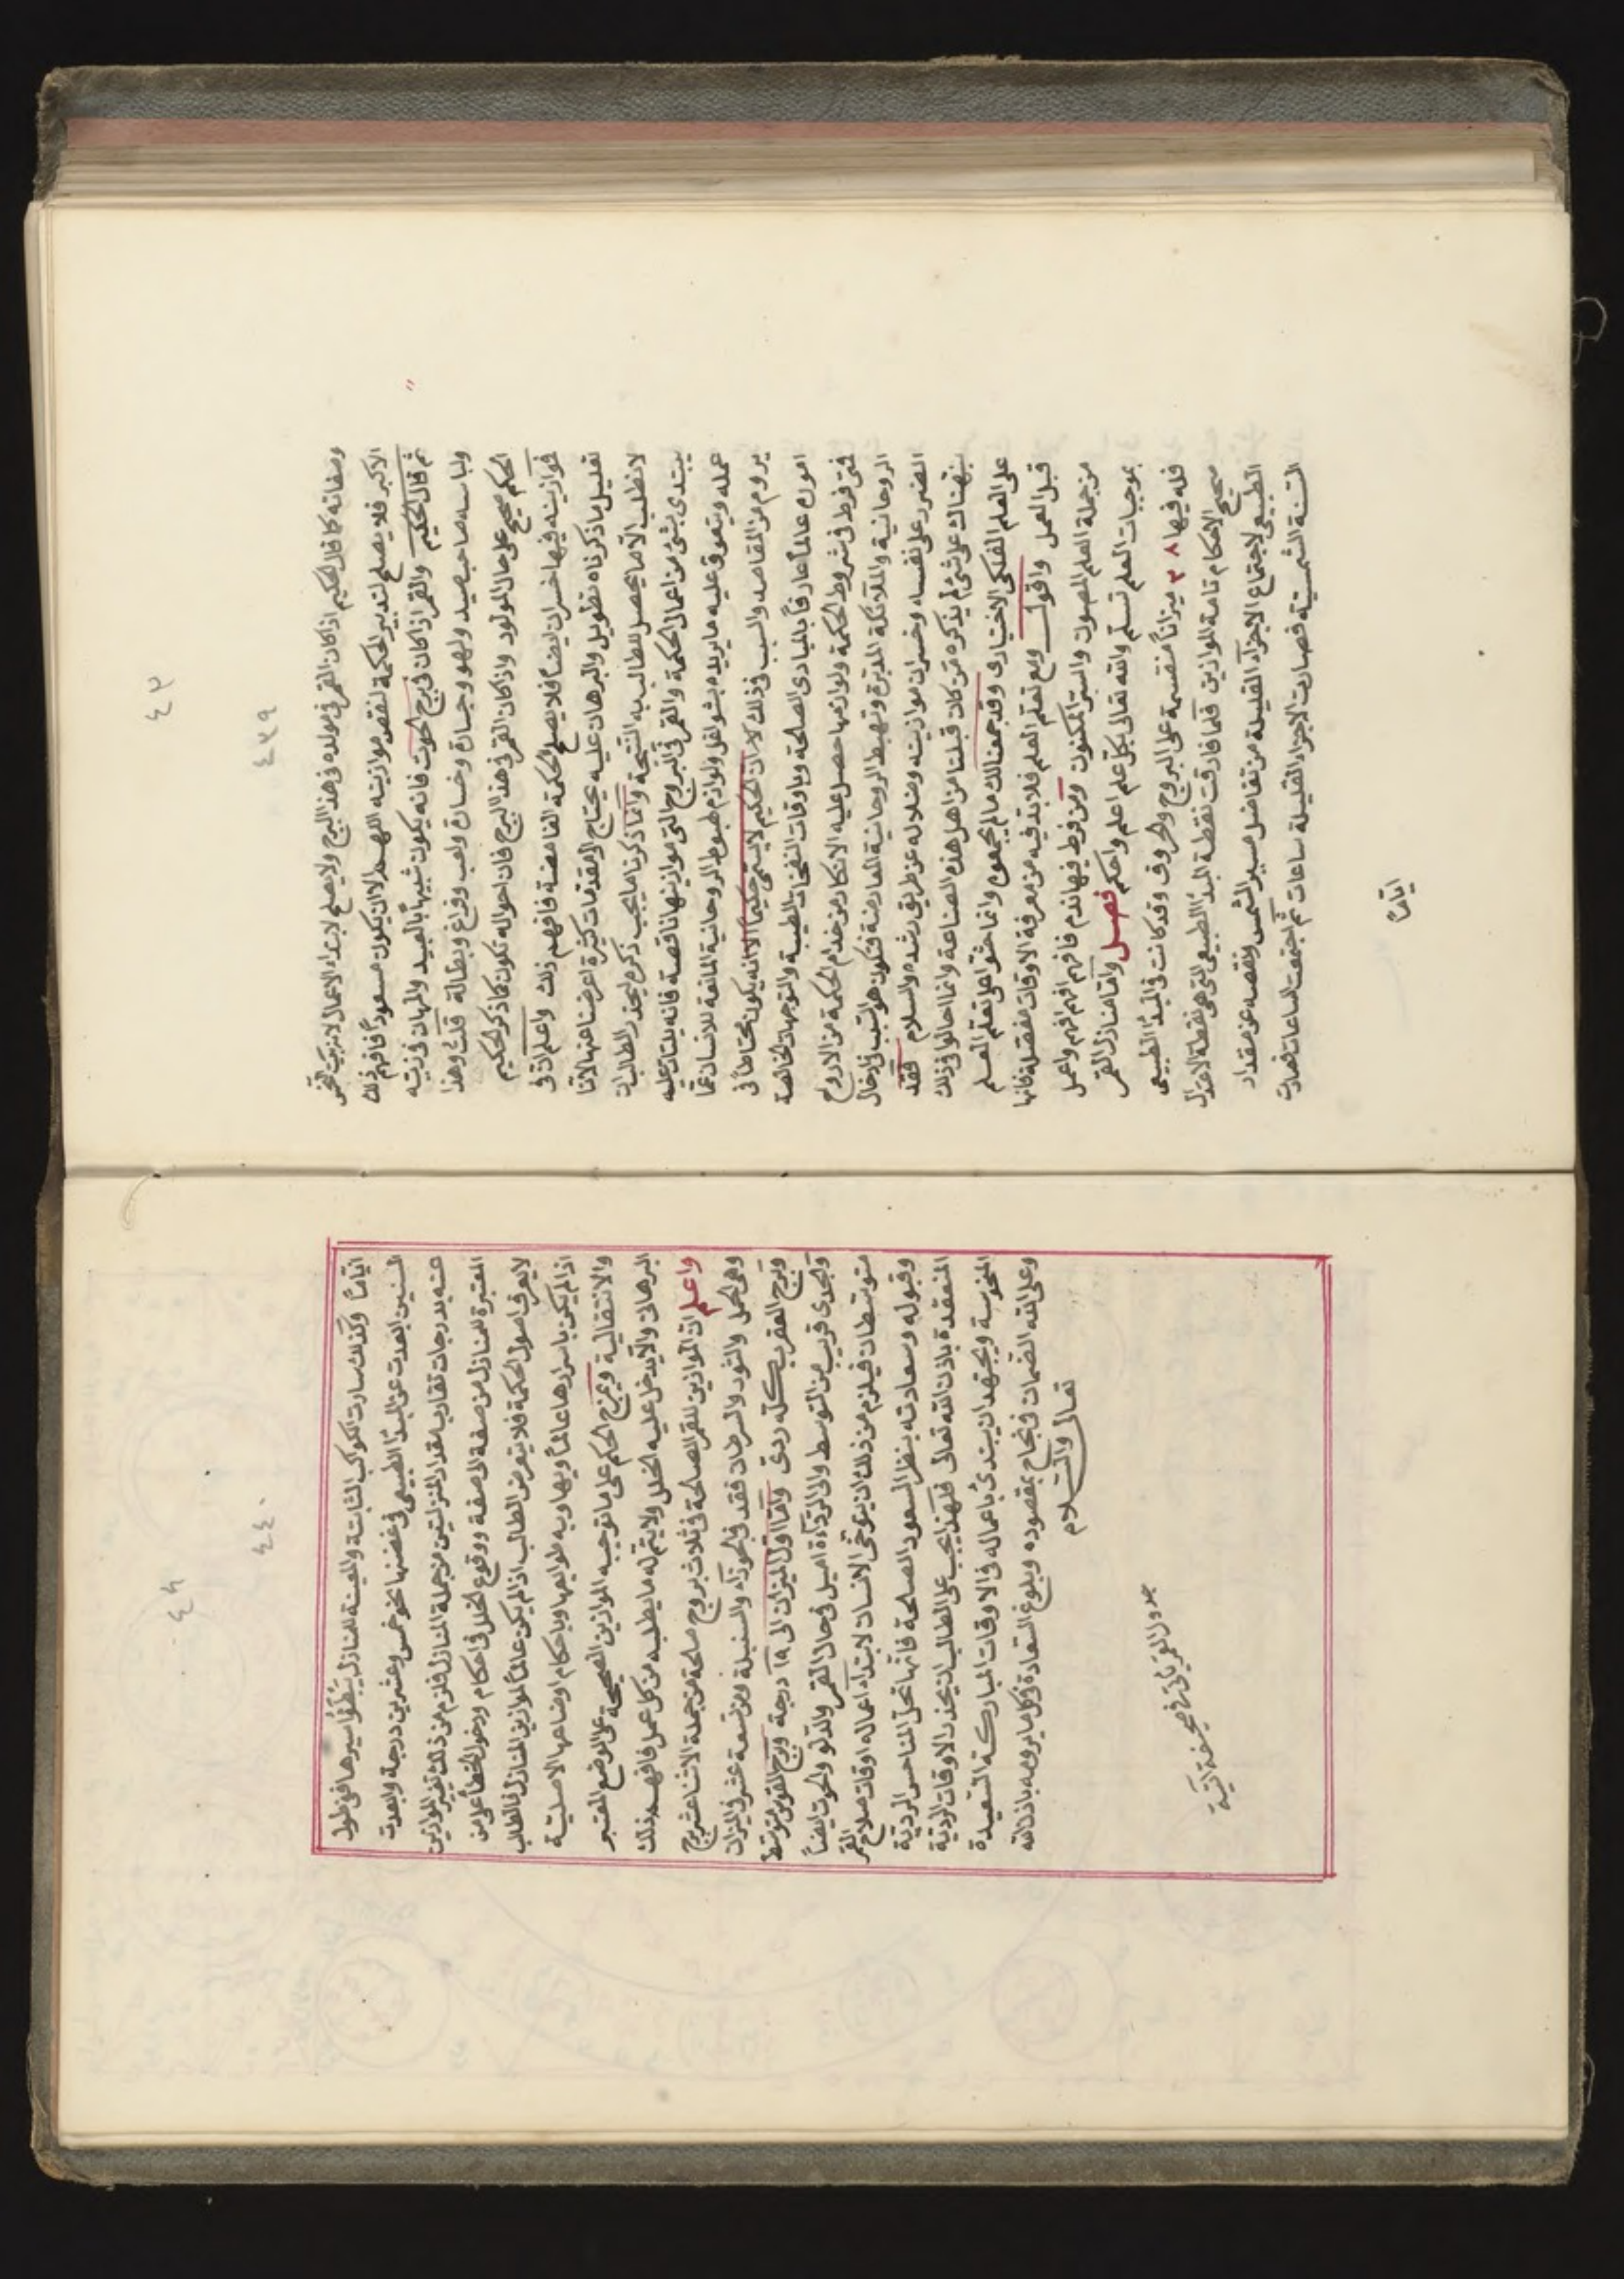 ٤٣
٤٣٩
وصفاته كما قال الحكيم اذا كان القمر فى مولده فى هذا البرج ولا يصلح لابتداء الاعمال لانه بيت النحس
الاكبر فلا يصلح لتدبير الحكمة لنقص موازينه اللهم الا ان يكون مسعودا فافهم ذلك
ثم قال الحكيم والقمر اذا كان فى برج الحوت فانه يكون شبيها بالعبيد والمهان فى زيّه
ولباسه صاحب صيد ولهو وجسارة وخسارة ولعب وفراغ وبطالة قلت وهذا
الحكم صحيح على حال المولود واذا كان القمر فى هذا البرج فان احواله تكون كما ذكر الحكيم
فموازينه فيها خسران ايضا فلا يصلح للحكمة الغامضة فافهم ذلك واعلم ان فى
تعليل ما ذكرناه تطويل والبرهان عليه يحتاج الى مقدمات كثيرة اعرضنا عنها لاننا
لا نطلب الا ما يحصل للطالب به النتيجة وانما ذكرنا ما يجب ذكره ليحذر الطالب ان
يبتدى بشئ من اعمال الحكمة والقمر فى البروج التى موازينها ناقصة فانه يلتاث عليه
عمله ويتعوق عليه ما يريده بشواغل ولوازم طبوط الروحانية المانعة للانسان عما
يروم من المقاصد والسبب فى ذلك لان الحكيم لا يسمى حكيما الا انه يكون محتاطا فى
اموره عالما عارفا بالمبادى الصالحة وباوقات النفحات الطيبة والتوجهات الخالصة
فمتى فرط فى شروط الحكمة ولوازمها حصل عليه الانكار من خدام الحكمة من الارواح
الروحانية والملائكة المدبرة وتهبط الروحانية المعارضة فتكون هو السبب فى ادخال
الضرر على نفسه وخسران موازينه وضلاله عن طريق رشده والسلام فقد
نبهناك على شئ لم يذكره من كان قبلنا من اهل هذه الصناعة وانما احالوا فى ذلك
على العلم الفلكى الاختيارى وقد جمعنا لك ما لم يجمعوه وانما حثوا على تعلم العلم
قبل العمل واقول ومع تعلم العلم فلا بد فيه من معرفة الاوقات مفصلة فانها
من جملة العلم المصون والسر المكنون ومن فرط فيها ندم فافهم افهم افهم واعمل
بموجبات العلم تسلم والله تعالى بكل علم اعلم واحكم فصل واما منازل القمر
فله فيها ٣٠٨ ميزانا منقسمة على البروج والحروف وقد كانت فى المبدأ الطبيعى
صحيح الاحكام تامة الموازين فلما فارقت نقطة المبدأ الطبيعى التى هى نقطة الاعتدال
الطبيعى لاجتماع الاجزاء القليلة من تفاضل مسير الشمس ونقصه عن مقدار
السنة الشمسية فصارت الاجزاء القليلة ساعات ثم اجتمعت الساعات فصارت
اياما
٤٤
٤٤٠
اياما وكذلك سارت الكواكب الثابتة والمعينة للمنازل بتبطّؤ سيرها فى طول
السنين فبعدت عن المبدأ الطبيعى فى غضنها نحو خمس وعشرين درجة وابعدت
عنه بدرجات تقارب مقدار المنزلتين من جملة المنازل فلزم من ذلك تغير الموازين
المعتبرة للمنازل من صفة الى صفة ووقوع الخلل فى احكام ودخول الخطأ على من
لا يعرف اصول الحكمة فلا يتعرض الطالب اذا لم يكن عالما لموازين المنازل فالطالب
اذا لم يكن باسرارها عالما وبها وبه طوابعها وباحكام اوضاعها الاصلية
والانتقالية ويمزج الحكم على ما توجبه الموازين الصحيحة على الوضع المعتبر
البرهان والا يدخل عليه الخلل ولا يتم له ما يطلبه من كل عمل فافهم ذلك
واعلم ان الموازين للقمر الصالحة فى ثلاث بروج صالحة من جملة الاثنا عشر برج
وهى الحمل والثور والسرطان فقد فى الجوزاء والسنبلة ومن تسعة عشر فى الميزان
وبرج العقرب كله ردى واما اول الميزان الى ١٩ درجة وبرج القوس متوسط
والجدى قريب من التوسط والى الرداءة اميل فى حال القمر والدلو والحوت ايضا
متوسطان فيلزم من ذلك ان يتوخى الانسان لابتداء اعماله اوقات صلاح القمر
وقبوله وسعادته بنظر السعود الصالحة فانها تحل المناحس الردية
المنعقدة باذن الله تعالى فلهذا يجب على الطالب ان يحذر الاوقات الردية
المنحوسة ويجتهد ان يبتدئ باعماله فى الاوقات المباركة السعيدة
وعلى الله الضمان فى نجاح بمقصوده وبلوغ السعادة فى كل ما يرومه باذن الله
تعالى والسلام
جدول القمر ياتى فى صحيفة آتية